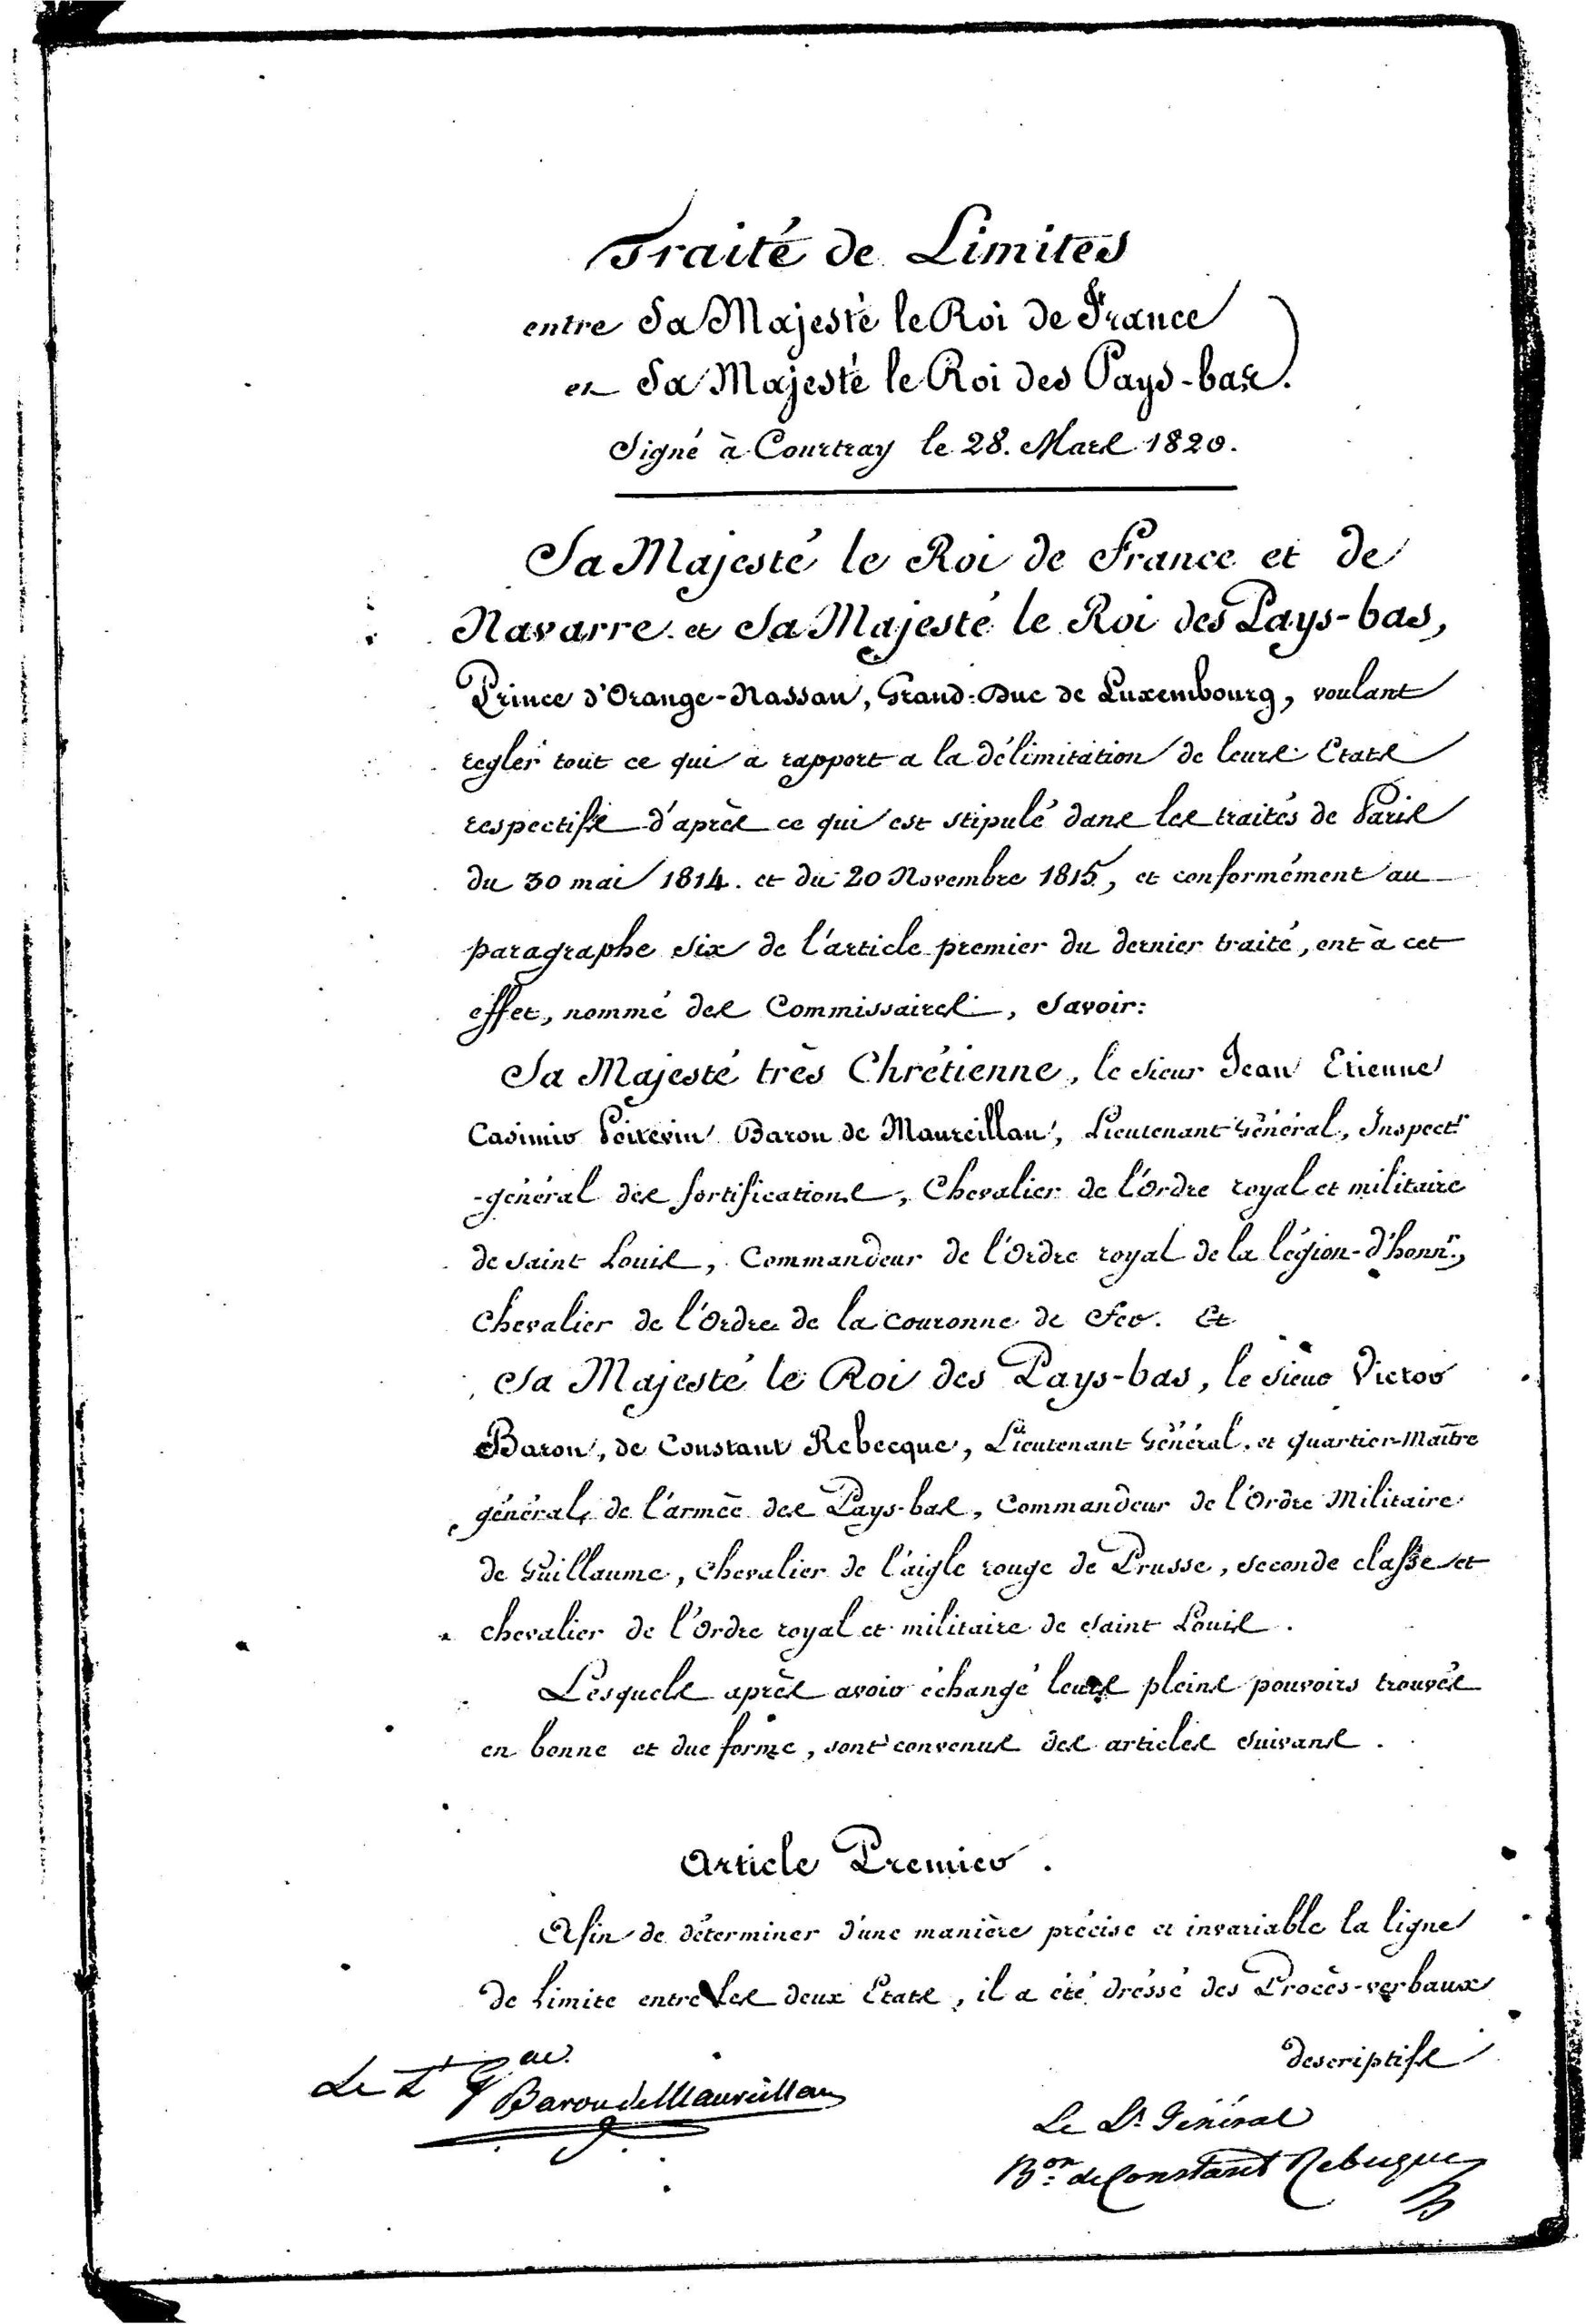 Traité de Limites
entre Sa Majesté le Roi de France
et Sa Majesté le Roi des Pays-bas.
Signé à Courtray le 28. Mars 1820.
Sa Majesté le Roi de France et de
Navarre et Sa Majesté le Roi des Pays-bas,
Prince d'Orange-Nassau, Grand-Duc de Luxembourg, voulant
regler tout ce qui a rapport a la délimitation de leurs Etats
respectifs d'après ce qui est stipulé dans les traités de Paris
du 30 mai 1814. et du 20 Novembre 1815, et conformément au
paragraphe six de l'article premier du dernier traité, ont à cet
effet, nommé des Commissaires, Savoir:
Sa Majesté très Chrétienne, le Sieur Jean Etienne
Casimir Poitevin Baron de Maureillan, Lieutenant Général, Inspectr.
-général des fortifications, Chevalier de l'Ordre royal et militaire
de Saint Louis, Commandeur de l'Ordre royal de la légion-d'honnr.,
Chevalier de l'Ordre de la Couronne de Fer. Et
Sa Majesté le Roi des Pays-bas, le Sieur Victor
Baron, de Constant Rebecque, Lieutenant Général, et Quartier-Maître
général, de l'armée des Pays-bas, Commandeur de l'Ordre Militaire
de Guillaume, Chevalier de l'aigle rouge de Prusse, seconde classe et
chevalier de l'Ordre royal et militaire de Saint Louis.
Lesquels après avoir échangé leurs pleins pouvoirs trouvés
en bonne et due forme, sont convenus des articles Suivans.
Article Premier.
Afin de déterminer d'une manière précise et invariable la ligne
de Limite entre Les deux Etats, il a été dréssé des Procès-verbaux
descriptifs
Le Lt Gal.
Baron de Maureillan
Le Lt. Général
Bon. de Constant Rebecque